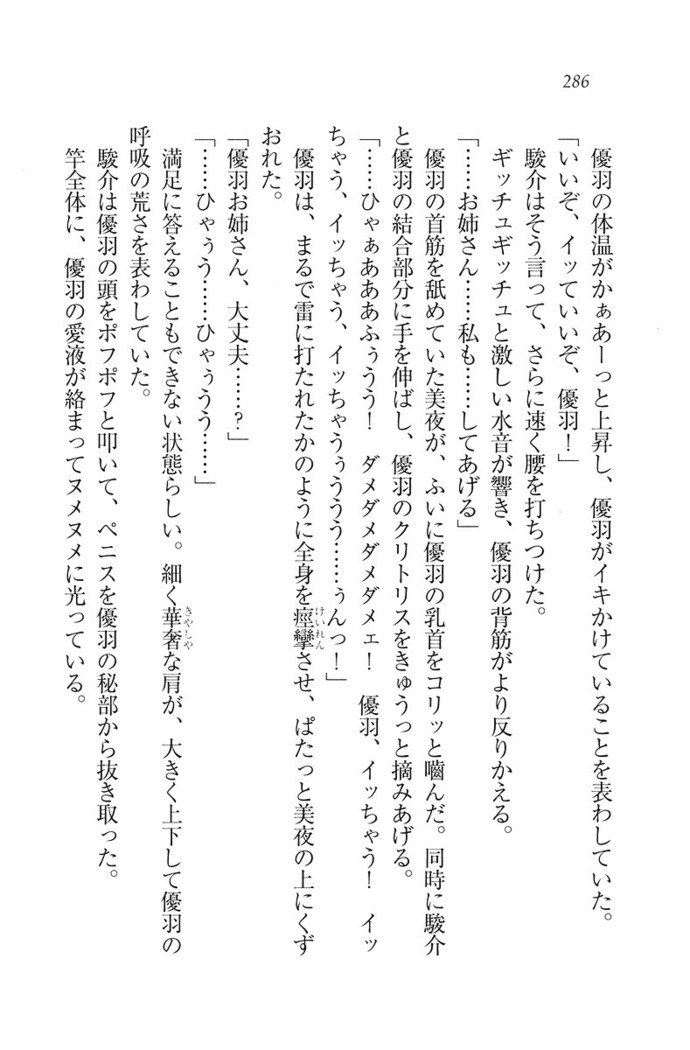 286
優羽の体温がかぁあーっと上昇し、優羽がイキかけていることを表わしていた。
「いいぞ、イッていいぞ、優羽！」
駿介はそう言って、さらに速く腰を打ちつけた。
ギッチュギッチュと激しい水音が響き、優羽の背筋がより反りかえる。
「……お姉さん……私も……してあげる」
優羽の首筋を舐めていた美夜が、ふいに優羽の乳首をコリッと嚙んだ。同時に駿介
と優羽の結合部分に手を伸ばし、優羽のクリトリスをきゅうっと摘みあげる。
「……ひゃぁあああふぅうう！　ダメダメダメダメェ！　優羽、イッちゃう！　イッ
ちゃう、イッちゃう、イッちゃうぅうう……ぅんっ！」
優羽は、まるで雷に打たれたかのように全身を痙攣けいれんさせ、ぱたっと美夜の上にくず
おれた。
「優羽お姉さん、大丈夫……？」
「……ひゃぅう……ひゃぅうう……」
満足に答えることもできない状態らしい。細く華奢きやしやな肩が、大きく上下して優羽の
呼吸の荒さを表わしていた。
駿介は優羽の頭をポフポフと叩いて、ペニスを優羽の秘部から抜き取った。
竿全体に、優羽の愛液が絡まってヌメヌメに光っている。